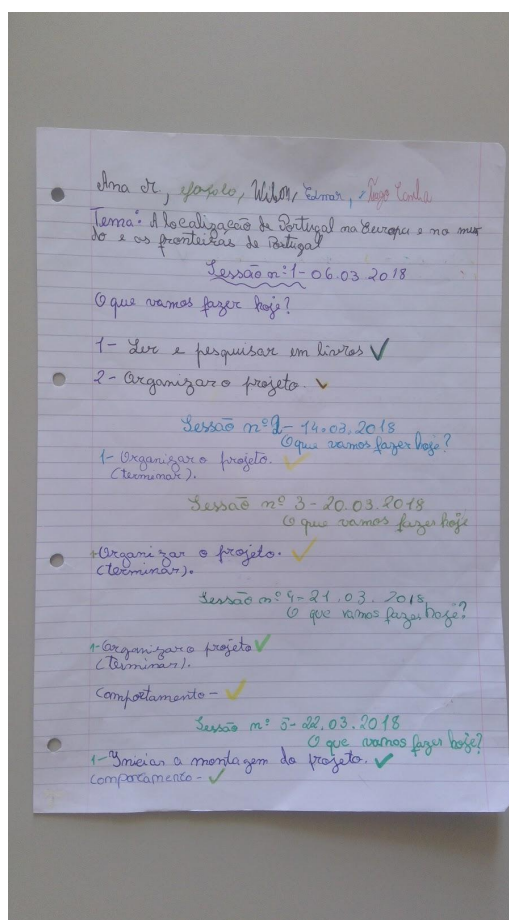 Ana , Wilson, Tiago Cunha
Tema: A localização de Portugal na Europa e no mun
do e as fronteiras de Portugal
Sessão nº 1- 06.03 2018
O que vamos fazer hoje?
1- Ler e pesquisar em livros ✓
2- Organizar o projeto. ✓
Sessão nº 2- 14.03.2018
O que vamos fazer hoje?
1- Organizar o projeto. ✓
(terminar).
Sessão nº 3-20.03.2018
O que vamos fazer hoje
Organizar o projeto. ✓
(terminar).
Sessão nº 4-21.03.2018
O que vamos fazer hoje?
1-Organizar o projeto ✓
(terminar).
Comportamento - ✓
Sessão nº 5-22.03.2018
O que vamos fazer hoje?
1-Iniciar a montagem do projeto. ✓
Comportamento - ✓